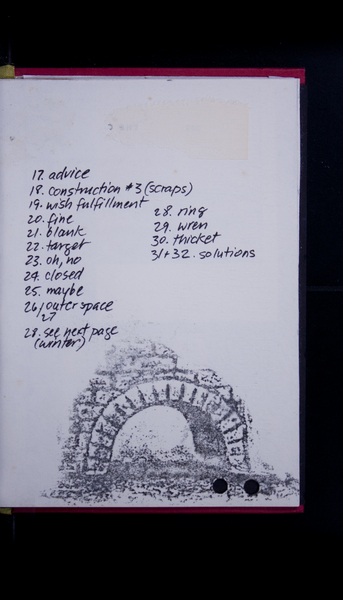 17. advice
18. construction #3 (scraps)
19. wish fulfillment
20. fine
21. blank
22. target
23. oh, no
24. closed
25. maybe
26/ outer space
27
28. see next page
(winter)
28. ring
29. wren
30. thicket
31+32. solutions